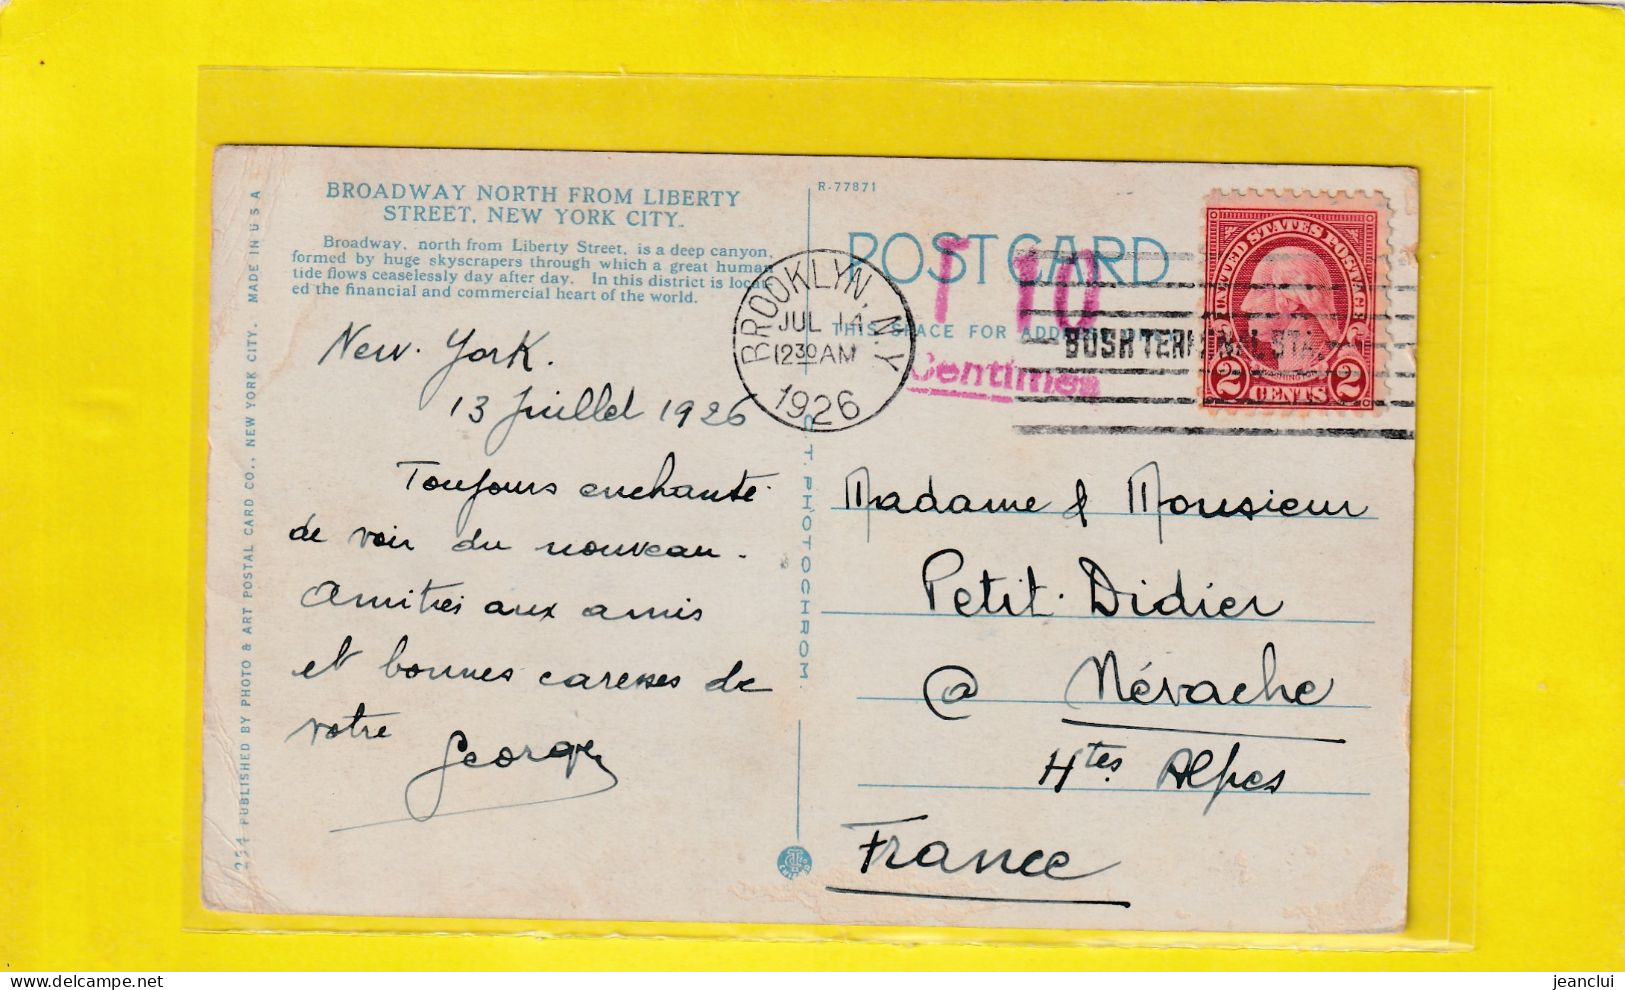 BROADWAY NORTH FROM LIBERTY
STREET, NEW YORK CITY.
Broadway, north from Liberty Street, is a deep canyon,
formed by huge skyscrapers through which a great human
tide flows ceaselessly day after day. In this district is locat-
ed the financial and commercial heart of the world.
New-York.
13 Juillet 1926
Toujours enchanté
de voir du nouveau.
Amitiés aux amis
et bonnes caresses de
votre
George
294 PUBLISHED BY PHOTO & ART POSTAL CARD CO., NEW YORK CITY. MADE IN U S A
C. T. PHOTOCHROM.
R-77871
POST CARD
THIS SPACE FOR ADD
T 10
Centimes
BROOKLYN, N.Y.
JUL 14
12 30 AM
1926
BUSH TERMINAL STA.
UNITED STATES POSTAGE
WASHINGTON
2 CENTS 2
Madame & Monsieur
Petit-Didier
@ Névache
Htes Alpes
France
jeanclui